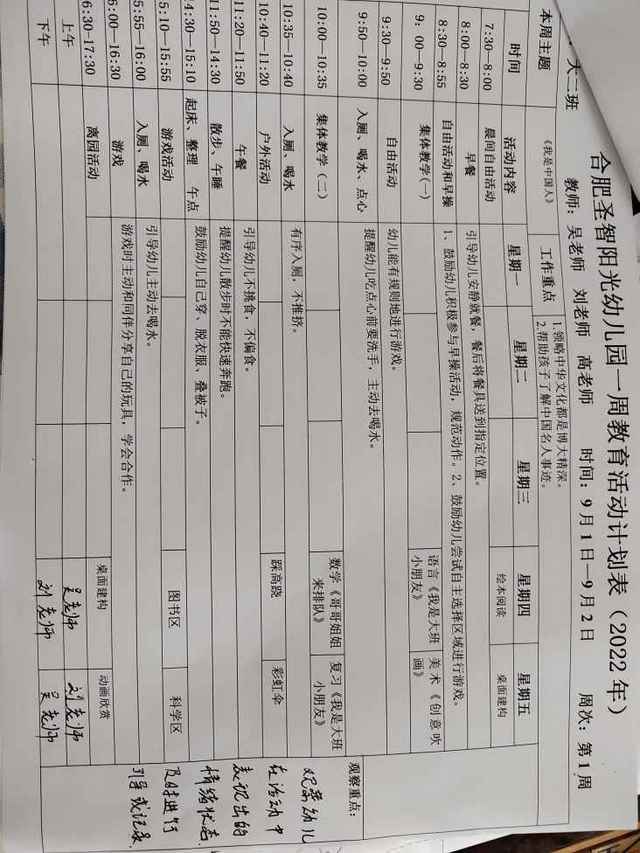 合肥圣智阳光幼儿园一周教育活动计划表（2022年）
大二班 教师：吴老师 刘老师 高老师 时间：9月1日—9月2日 周次：第1周
本周主题 《我是中国人》 工作重点 1.领略中华文化都是博大精深。
2.帮助孩子了解中国名人事迹。
时间 活动内容 星期一 星期二 星期三 星期四 星期五
7:30—8:00 晨间自由活动 绘本阅读 桌面建构
8:00—8:30 早餐 引导幼儿安静就餐，餐后将餐具送到指定位置。
8:30—8:55 自由活动和早操 1、鼓励幼儿积极参与早操活动，规范动作。2、鼓励幼儿尝试自主选择区域进行游戏。
9：00—9:30 集体教学(一) 语言《我是大班小朋友》 美术《创意吹画》
9:30—9:50 自由活动 幼儿能有规则地进行游戏。
9:50—10:00 入厕、喝水、点心 提醒幼儿吃点心前要洗手，主动去喝水。
10:00—10:35 集体教学（二） 数学《哥哥姐姐来排队》 复习《我是大班小朋友》
10:35—10:40 入厕、喝水 有序入厕，不推挤。
10:40—11:20 户外活动 踩高跷 彩虹伞
11:20—11:50 午餐 引导幼儿不挑食，不偏食。
11:50—14:30 散步、午睡 提醒幼儿散步时不能快速奔跑。
4:30—15:10 起床、整理 午点 鼓励幼儿自己穿、脱衣服、叠被子。
5:10—15:55 游戏活动 图书区 科学区
5:55—16:00 入厕、喝水 引导幼儿主动去喝水。
6:00—16:30 游戏 游戏时主动和同伴分享自己的玩具，学会合作。
6:30-17:30 离园活动 桌面建构 动画欣赏
上午 吴老师 刘老师
下午 刘老师 吴老师
观察重点：
观察幼儿
在活动中
表现出的
情绪状态，
及时进行
引导或记录